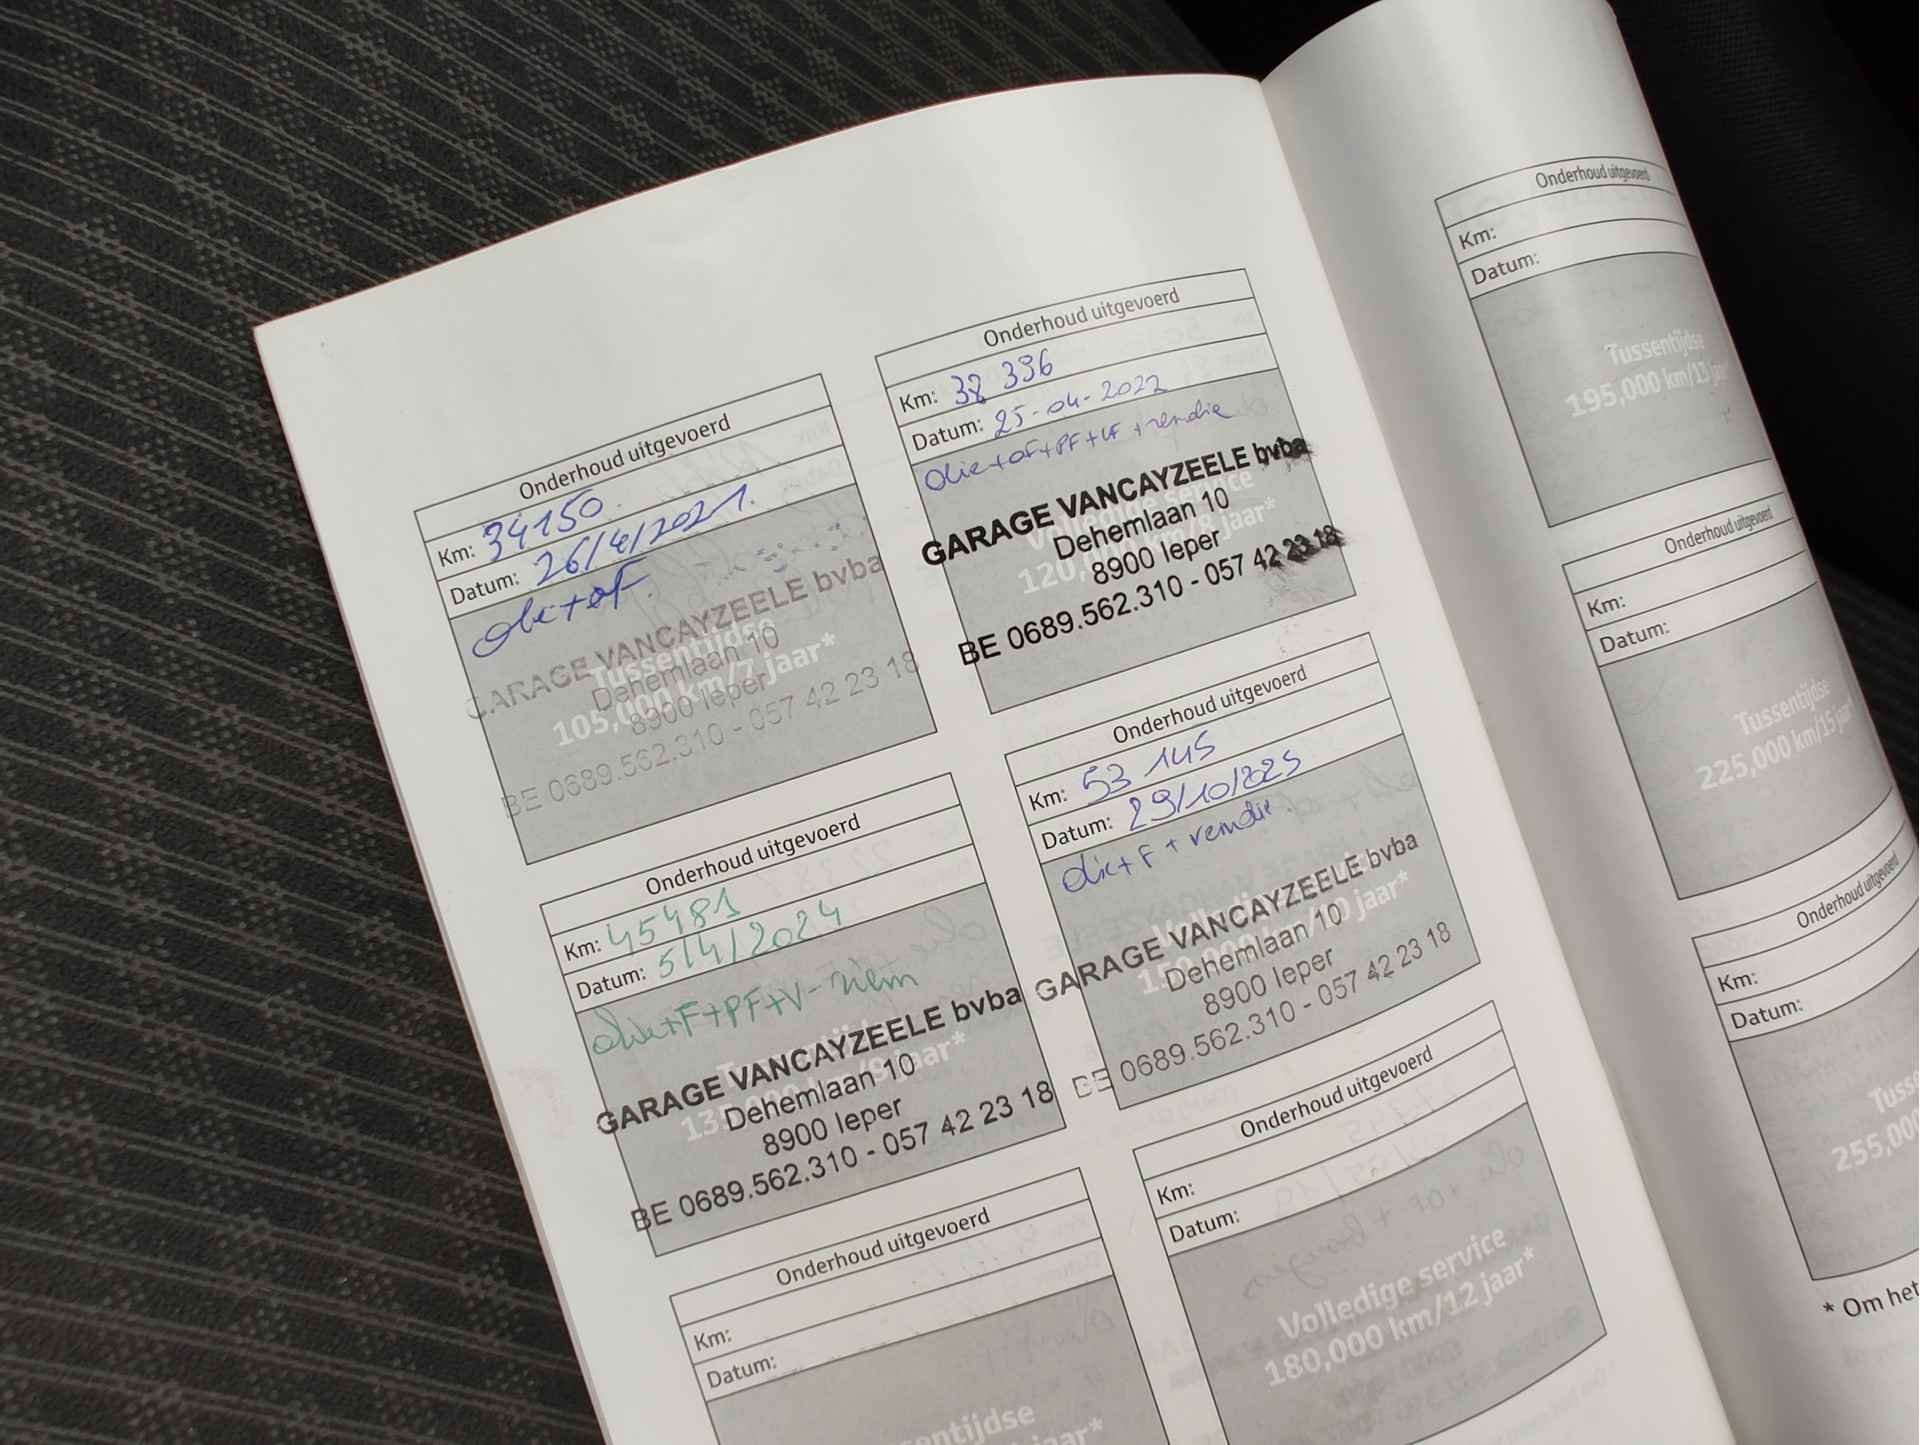 Onderhoud uitgevoerd
Km: 34150.
Datum: 26/4/2021.
olie+of.
GARAGE VANCAYZEELE bvba
Dehemlaan 10
8900 Ieper
BE 0689.562.310 - 057 42 23 18
Tussentijdse
105,000 km/7 jaar*
Onderhoud uitgevoerd
Km: 38 396
Datum: 25-04-2022
Olie+oF+PF+LF+remolie
GARAGE VANCAYZEELE bvba
Dehemlaan 10
8900 Ieper
BE 0689.562.310 - 057 42 23 18
Volledige service
120,000 km/8 jaar*
Onderhoud uitgevoerd
Km: 45481
Datum: 5/4/2024
Olie+F+PF+V-riem
GARAGE VANCAYZEELE bvba
Dehemlaan 10
8900 Ieper
BE 0689.562.310 - 057 42 23 18
Tussentijdse
135,000 km/9 jaar*
Onderhoud uitgevoerd
Km: 53 145
Datum: 29/10/2025
Olie+F+remolie.
GARAGE VANCAYZEELE bvba
Dehemlaan 10
8900 Ieper
BE 0689.562.310 - 057 42 23 18
Volledige service
150,000 km/10 jaar*
Onderhoud uitgevoerd
Km:
Datum:
jaar*
Onderhoud uitgevoerd
Km:
Datum:
Volledige service
180,000 km/12 jaar*
Onderhoud uitgevoerd
Km:
Datum:
Tussentijdse
195,000 km/13 jaar*
Onderhoud uitgevoerd
Km:
Datum:
Tussentijdse
225,000 km/15 jaar*
Onderhoud uitgevoerd
Km:
Datum:
Tusse
255,00
* Om het